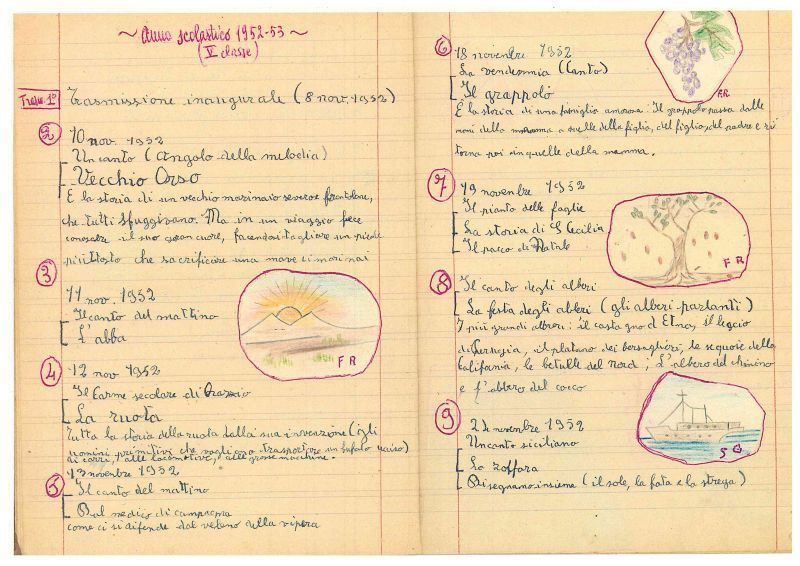 ~ Anno scolastico 1952-53 ~
(V classe)
Trasm. 1ª
Trasmissione inaugurale (8 nov. 1952)
2
10 nov. 1952
Un canto (Angolo della melodia)
Vecchio Orso
È la storia di un vecchio marinaio severo e
che tutti sfuggivano. Ma in un viaggio fece
conoscere il suo gran cuore, facendosi tagliare un piede
piuttosto che sacrificare una nave di marinai
3
11 nov. 1952
Il canto del mattino
L'abba
F R
4
12 nov 1952
Il Carme secolare di Orazio
La ruota
Tutta la storia della ruota dalla sua invenzione (gli
uomini primitivi che vogliono trasportare un bufalo ucciso)
ai carri, alle locomotive, alle grosse macchine.
5
13 novembre 1952
Il canto del mattino
Dal medico di campagna
come ci si difende dal veleno della vipera
6
18 novembre 1952
La vendemmia (Canto)
Il grappolo
F.R.
È la storia di una famiglia amorosa: Il grappolo passa dalle
mani della mamma a quelle della figlia, del figlio, del padre e ri
torna poi in quelle della mamma.
7
19 novembre 1952
Il pianto delle foglie
La storia di S Cecilia
Il pacco di Natale
F R
8
Il canto degli alberi
La festa degli alberi (gli alberi parlanti)
I più grandi alberi: il castagno d Etna, il leccio
di Perugia, il platano dei bersaglieri, le sequoie della
California, le betulle del Nord; L'albero del chinino
e l'albero del cocco
9
2 novembre 1952
Un canto siciliano
La zolfara
Disegnamo insieme (il sole, la fata e la strega)
S G